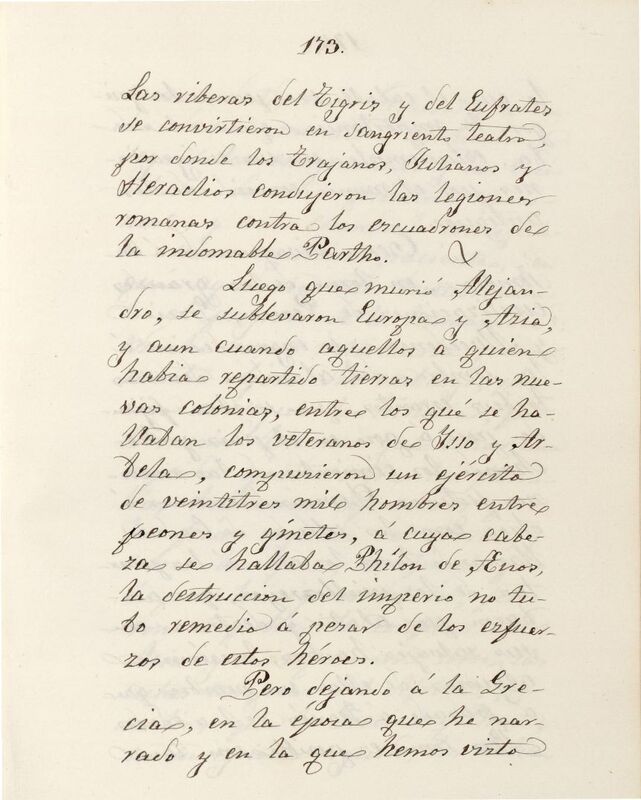 173.
Las riberas del Tigris y del Eufrates
se convirtieron en sangriento teatro,
por donde los Trajanos, Julianos y
Heraclios condujeron las legiones
romanas contra los escuadrones de
la indomable Partho.
Luego que murió Alejan-
dro, se sublevaron Europa y Asia,
y aun cuando aquellos á quien
habia repartido tierras en las nue-
vas colonias, entre los qué se ha-
llaban los veteranos de Isso y Ar-
bela, compusieron un ejército
de veintitres mil hombres entre
peones y ginetes, á cuya cabe-
za se hallaba Philon de Ænos,
la destruccion del imperio no tu-
bo remedio á pesar de los esfuer-
zos de estos héroes.
Pero dejando á la Gre-
cia, en la época que he nar-
rado y en la que hemos visto